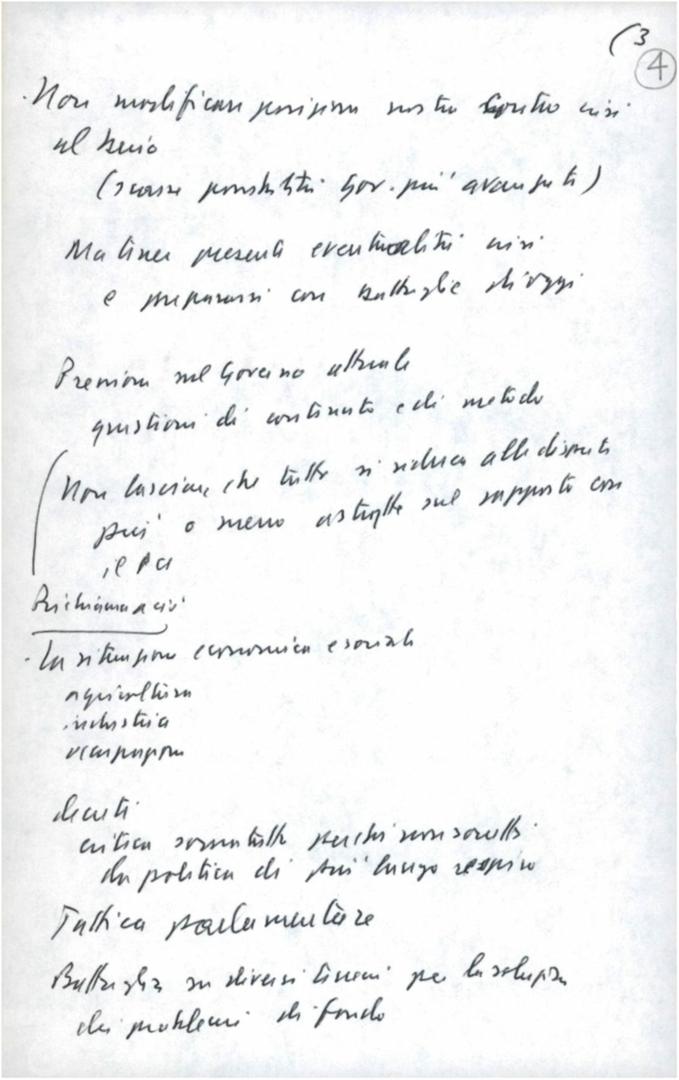 (3
4
· Non modificare posizione nostra contro crisi
al buio
(scarse possibilità Gov. più avanzati)
Ma tener presenti eventualità crisi
e prepararsi con battaglie di oggi
Pressioni sul Governo attuale
questioni di contenuto e di metodo
Non lasciare che tutto si riduca alle dispute
più o meno astratte sul rapporto con
il PCI
Richiamarci
· La situazione economica e sociale
agricoltura
industria
occupazione
decreti
critica soprattutto perché non sorretti
da politica di più lungo respiro
Tattica parlamentare
Battaglia su diversi terreni per la soluzione
dei problemi di fondo